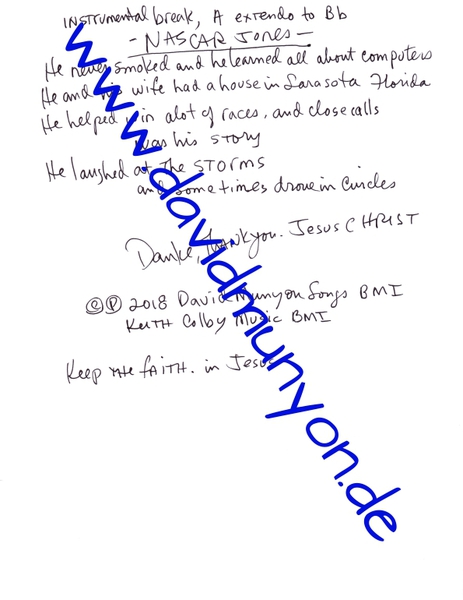 INSTRUMENTAL break, A extendo to Bb
- NASCAR Jones -
He never smoked and he learned all about computers
He and his wife had a house in Sarasota Florida
He helped win alot of races, and close calls
was his story
He laughed at the STORMS
and sometimes drove in circles
Danke, THANK you. Jesus CHRIST
© ℗ 2018 David Munyon Songs BMI
Keith Colby Music BMI
Keep the FAITH. in Jesus
www.davidmunyon.de